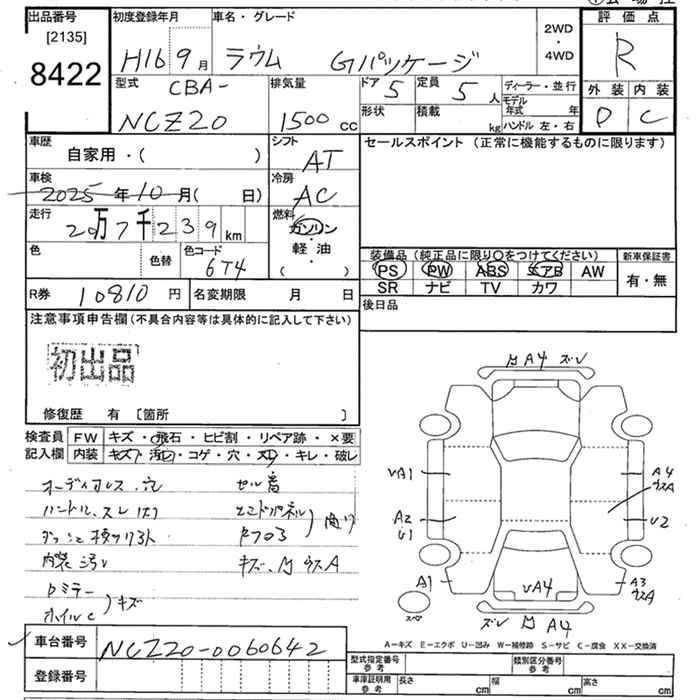 出品番号
[2135]
8422
初度登録年月
H16 9月
車名・グレード
ラウム Gパッケージ
2WD
・
4WD
評価点
R
外装 内装
D C
型式
CBA-
NCZ20
排気量
1500 cc
ドア 5
定員 5 人
形状
積載 kg
ディーラー・並行
モデル年式 年
ハンドル 左・右
車歴
自家用・( )
シフト
AT
セールスポイント (正常に機能するものに限ります)
車検
2025年10月( 日)
冷房
AC
走行
20万7千239km
燃料
ガソリン
軽・油
( )
色
色替
色コード
6T4
装備品 (純正品に限り〇をつけてください)
新車保証書
PS PW ABS エアB AW
有・無
SR ナビ TV カワ
R券 10810円
名変期限 月 日
後日品
注意事項申告欄(不具合内容等は具体的に記入して下さい)
初出品
修復歴 有 〔箇所 〕
検査員
記入欄
FW キズ・飛石・ヒビ割・リペア跡・×要
内装 キズ・汚レ・コゲ・穴・スレ・キレ・破レ
オーディオレス・穴 セル高
ハンドル、スレ
内装 汚レ キズ、
ドミラー
ホイルC
キズ
A4 ズレ
VA1
A4
A2
U1
U2
A1
A3
VA4
スペア
ズレ A4
A-キズ E-エクボ U-凹み W-補修跡 S-サビ C-腐食 XX-交換済
車台番号 NCZ20-0060642
登録番号
型式指定番号
参考
類別区分番号
参考
車庫証明用
参考
長さ cm
幅 cm
高さ cm